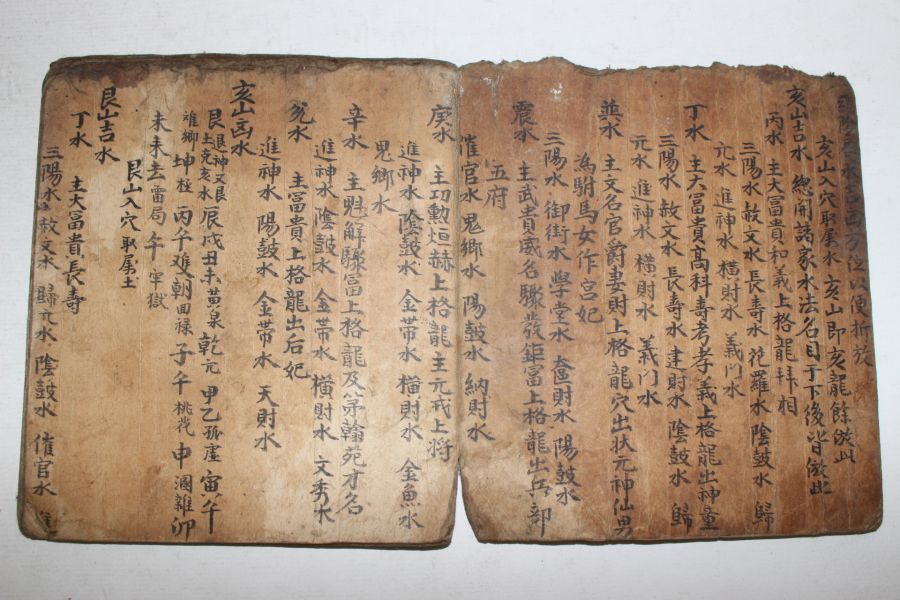 亥山入穴取属水 亥山即亥龍餘倣此
亥山吉水 総開諸家水法名目于下後皆倣此
丙水 主大冨貴和義上格龍拜相
三陽水赦文水長寿水花羅水陰鼓水 歸
元水 進神水 横財水 義门水
丁水 主大冨貴高科壽考孝義上格龍出神童
三陽水 赦文水 長壽水 建財水 陰鼓水 歸
元水 進神水 横財水 義门水
巽水 主文名官爵妻財上格龍穴出状元神仙男
為駙馬女作宮妃
三陽水 御街水 學堂水 財水 陽鼓水
震水 主武貴威名驟發鉅冨上格龍出兵部
五府
催官水 鬼鄉水 陽鼓水 納財水
庚水 主功勲烜赫上格龍主元戎上將
進神水 陰鼓水 金帯水 横財水 金魚水
鬼鄉水
辛水 主魁解驟冨上格龍及第翰苑才名
進神水 陰鼓水 金帯水 横財水 文秀水
兊水 主冨貴上格龍出后妃
進神水 陽鼓水 金帯水 天財水
亥山凶水
艮 退神又艮土克亥水 辰戌丑未黄泉 乾亢 甲乙孤虚 寅午
鄉 坤極 丙午 朝回禄 子午桃花 申 卯
未未去雷局午牢獄
艮山入穴取属土
艮山吉水
丁水 主大冨貴長壽
三陽水 赦文水 歸元水 陰鼓水 催官水 進